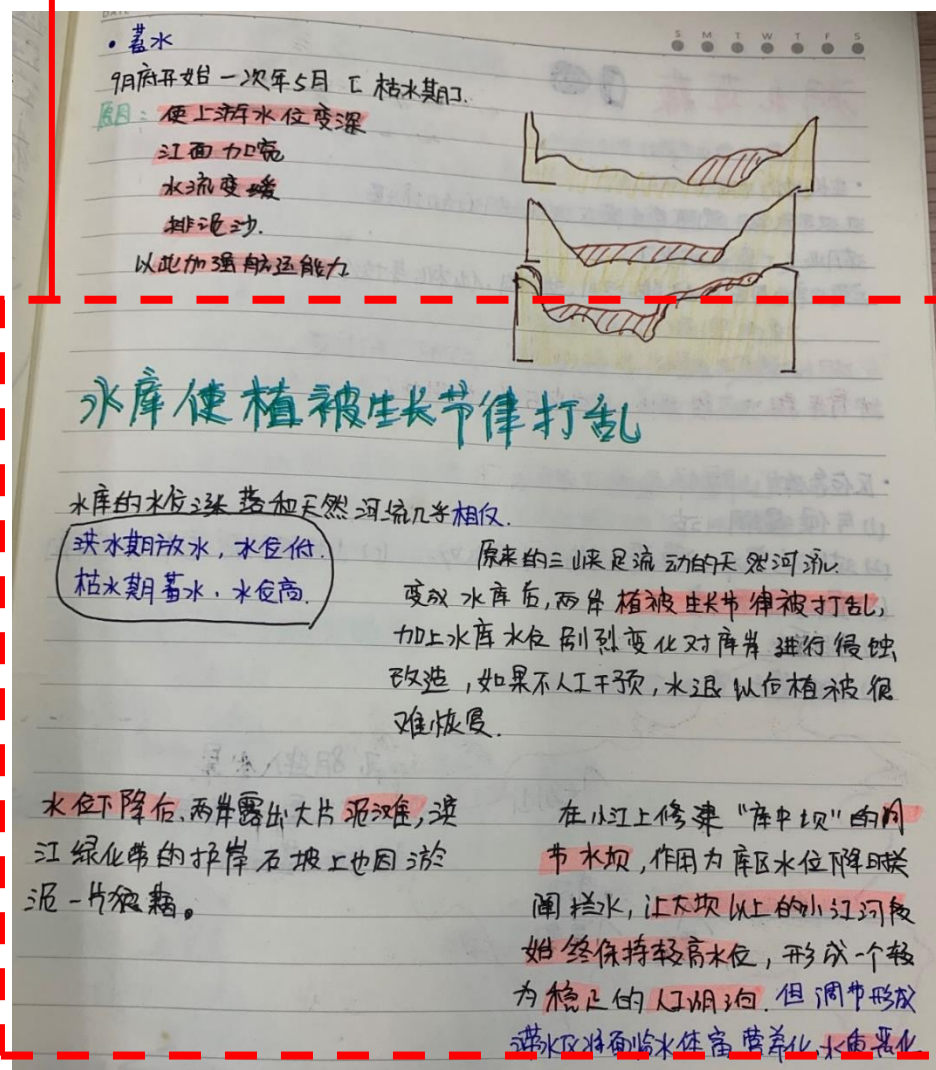 DATE
S M T W T F S
·蓄水
9月底开始一次年5月[枯水期].
原因:使上游水位变深
江面加宽
水流变缓
排泥沙.
以此加强航运能力
水库使植被生长节律打乱
水库的水位涨落和天然河流几乎相反.
洪水期放水,水位低.
枯水期蓄水,水位高.
原来的三峡是流动的天然河流.
变成水库后,两岸植被生长节律被打乱,
加上水库水位剧烈变化对库岸进行侵蚀
改造,如果不人工干预,水退以后植被很
难恢复.
水位下降后,两岸露出大片泥滩,滨
江绿化带的护岸石坡上也因淤
泥一片狼藉。
在小江上修建"库中坝"的调
节水坝,作用为库区水位下降时拦
闸拦水,让大坝以上的小江河段
始终保持较高水位,形成一个较
为稳定的人工湖泊.但调节形成
滞水区将面临水体富营养化,水质恶化